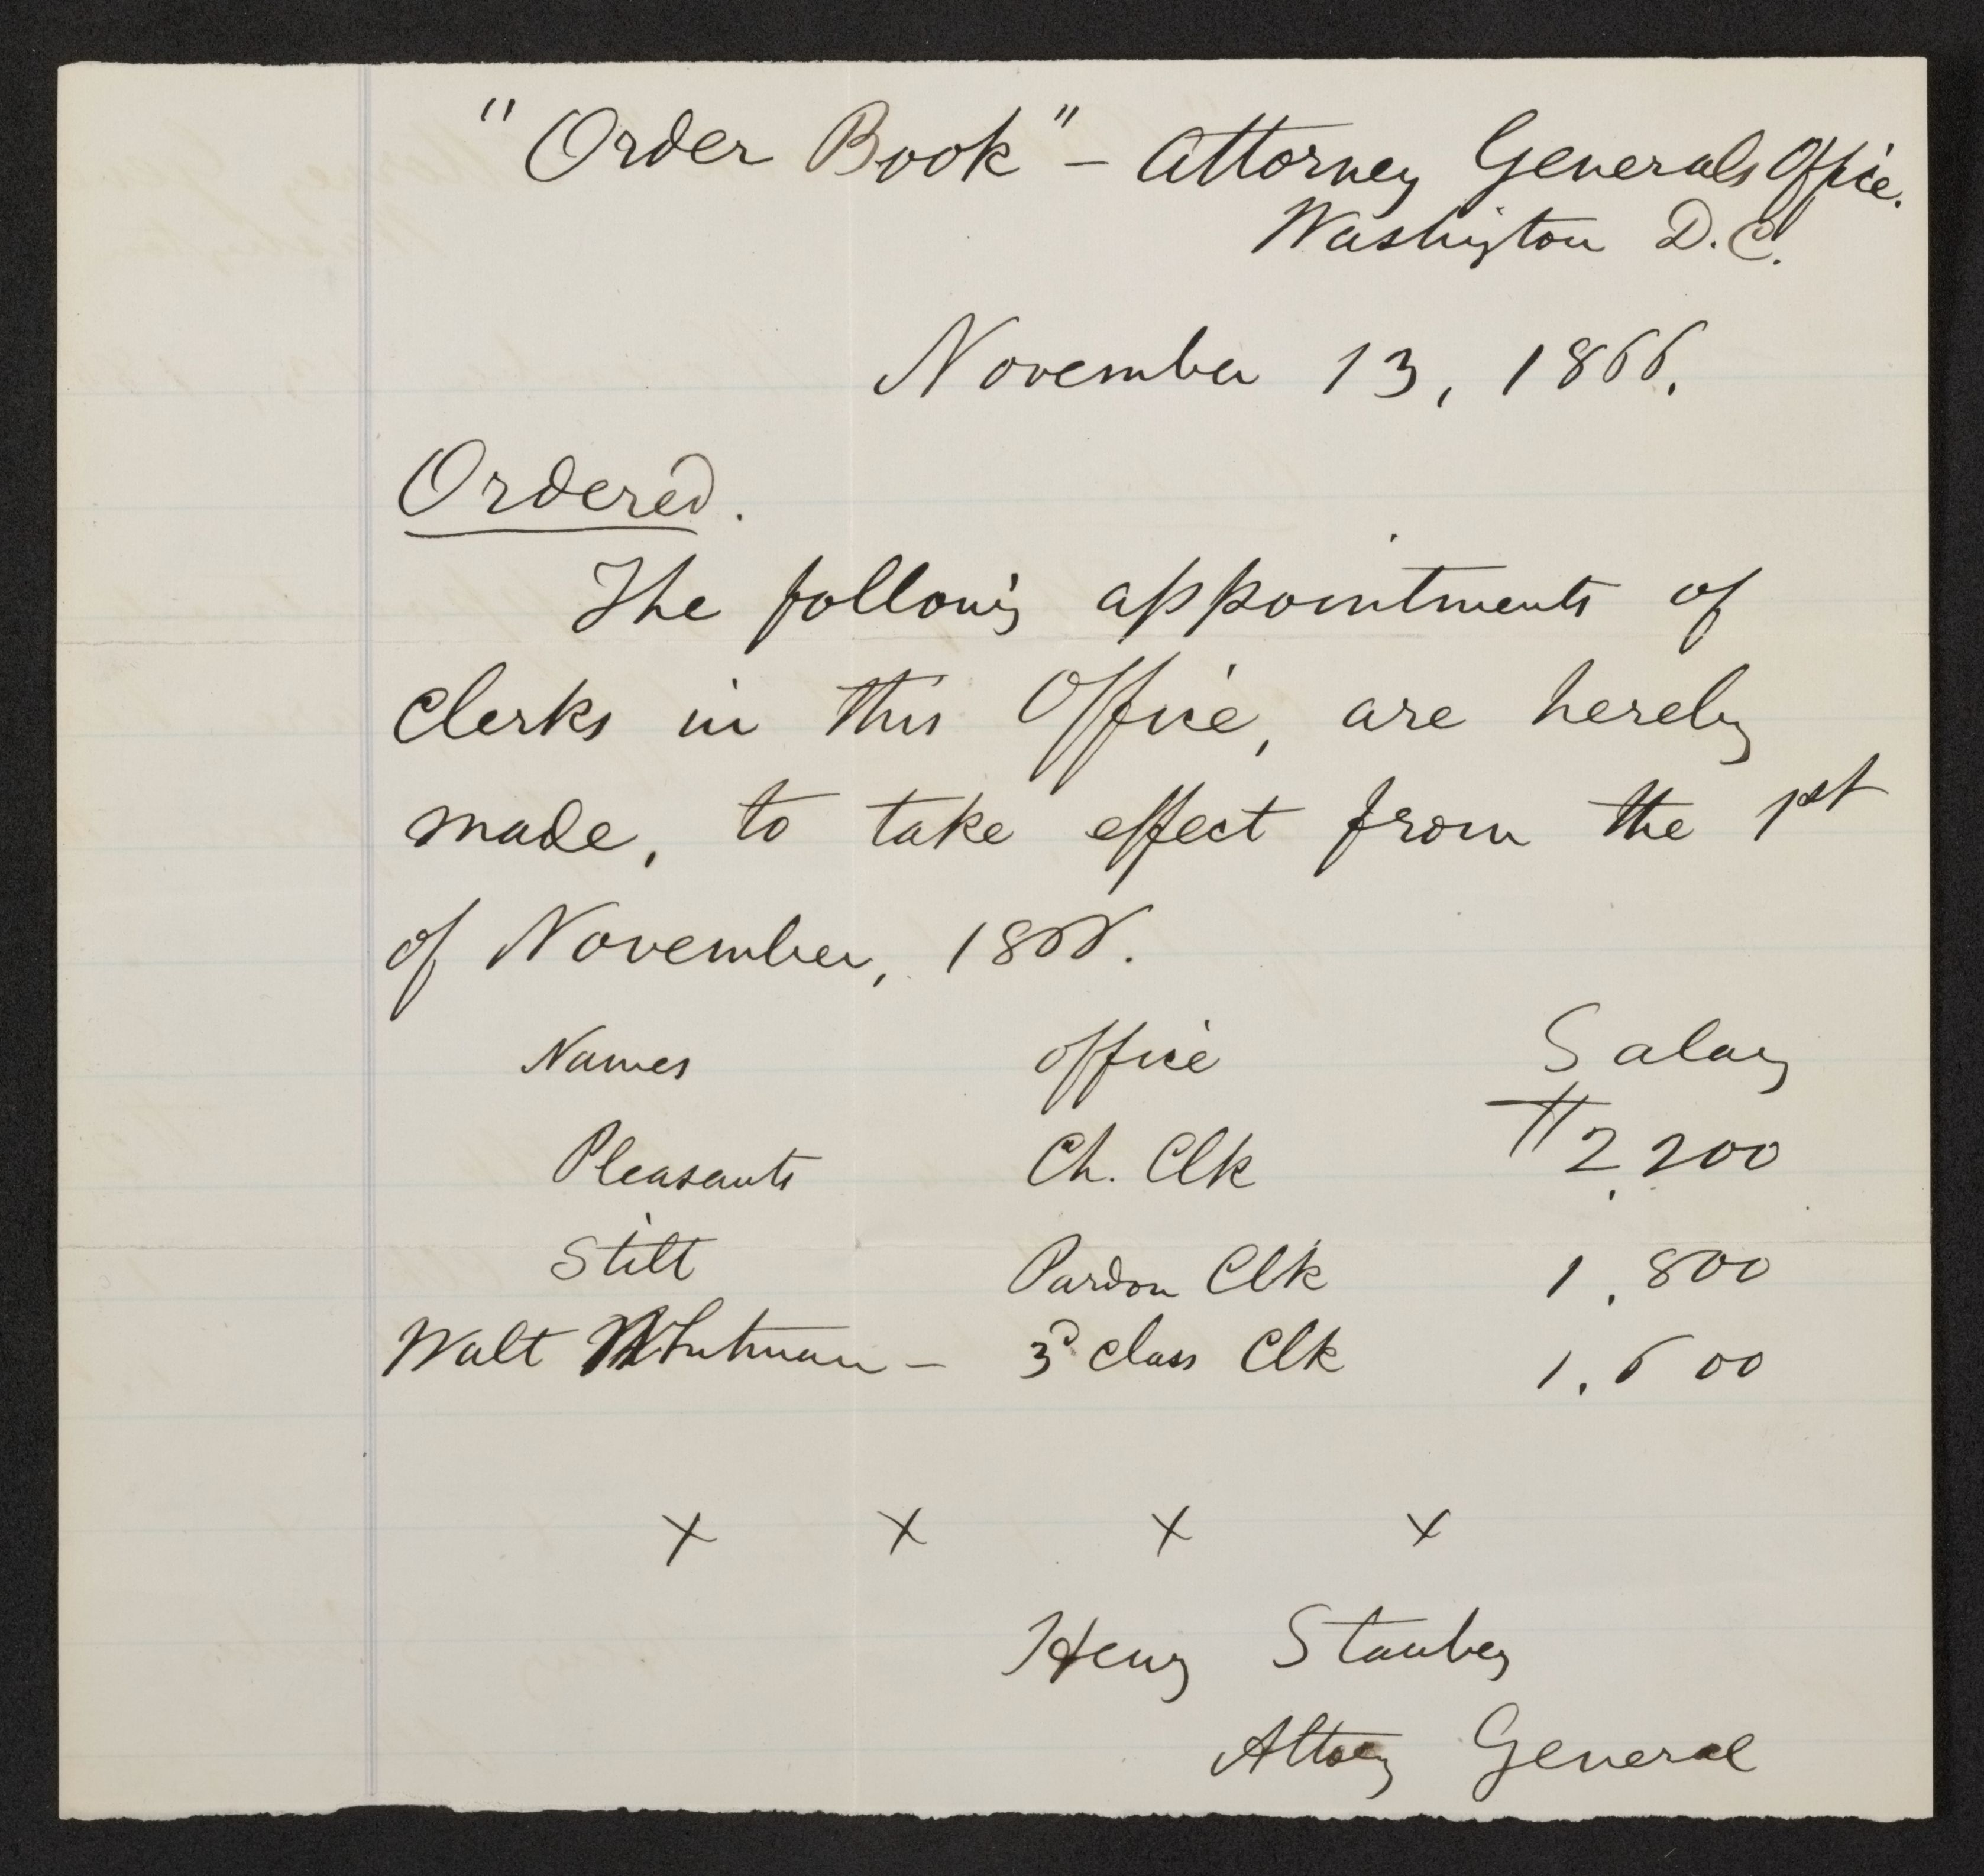 "Order Book" – Attorney Generals Office.
Washington D.C.
November 13, 1866.
Ordered.
The following appointments of
clerks in this Office, are hereby
made, to take effect from the 1st
of November, 1866.
Names Office Salary
Pleasants Ch. Clk $2,200
Stitt Pardon Clk 1,800
Walt Whitman – 3d class Clk 1,600
x x x x
Henry Stanbery
Attorney General